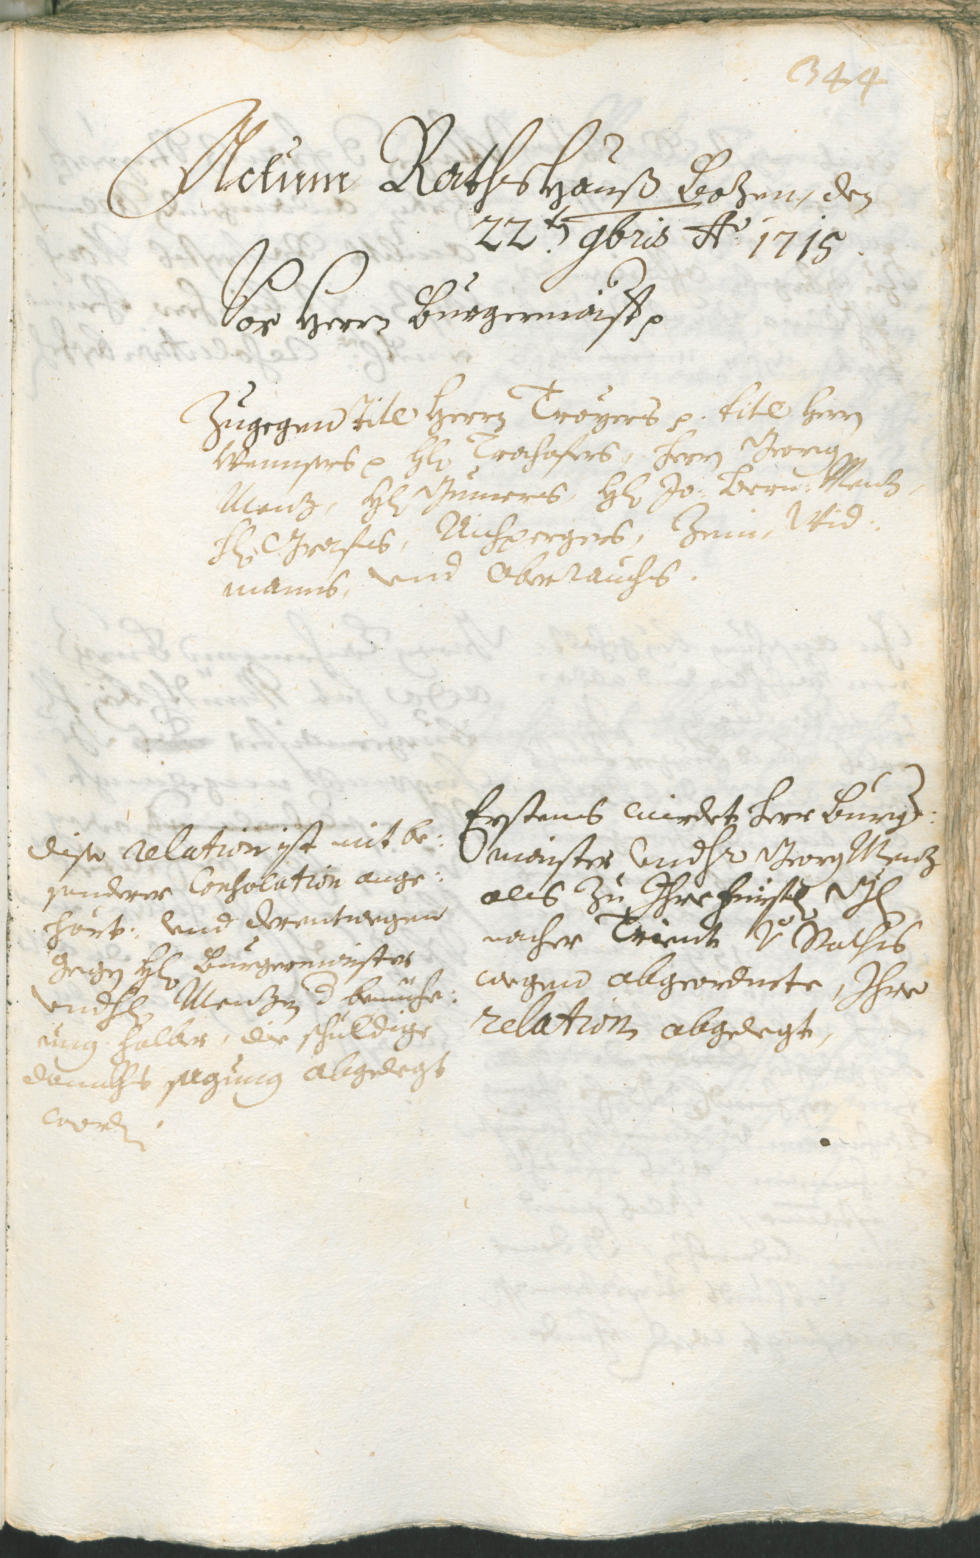 344
Actum RathsHauß Bozen, den
22t. 9bris Ao. 1715.
Vor Herrn Burgermaister
Zugegen Titl Herrn Troyers p. titl Herrn
Wenusers p Hr. Trochofers, Herrn Georg
Menz, Hr. Gumers, Hr. Jo: Bern: Menz,
Hr. Grafns, Aichpergers, Zein, Wid:
manns, vnd Oberrauchs.
Erstens wirdet Herr Burger:
maister vnd Hr. Georg Menz
als zu Ihro Fürstl.
nacher Trient
wegen abgeordnete, Ihre
relation abgelegt,
dise relation ist mit be:
sonderer Consolation ange:
hört, vnd derentwegen
gegen Hr. Burgermaister
vnd Hr. Menzen d bemiehe:
ung halber, die schuldige
danckhsagung abgelegt
worden.